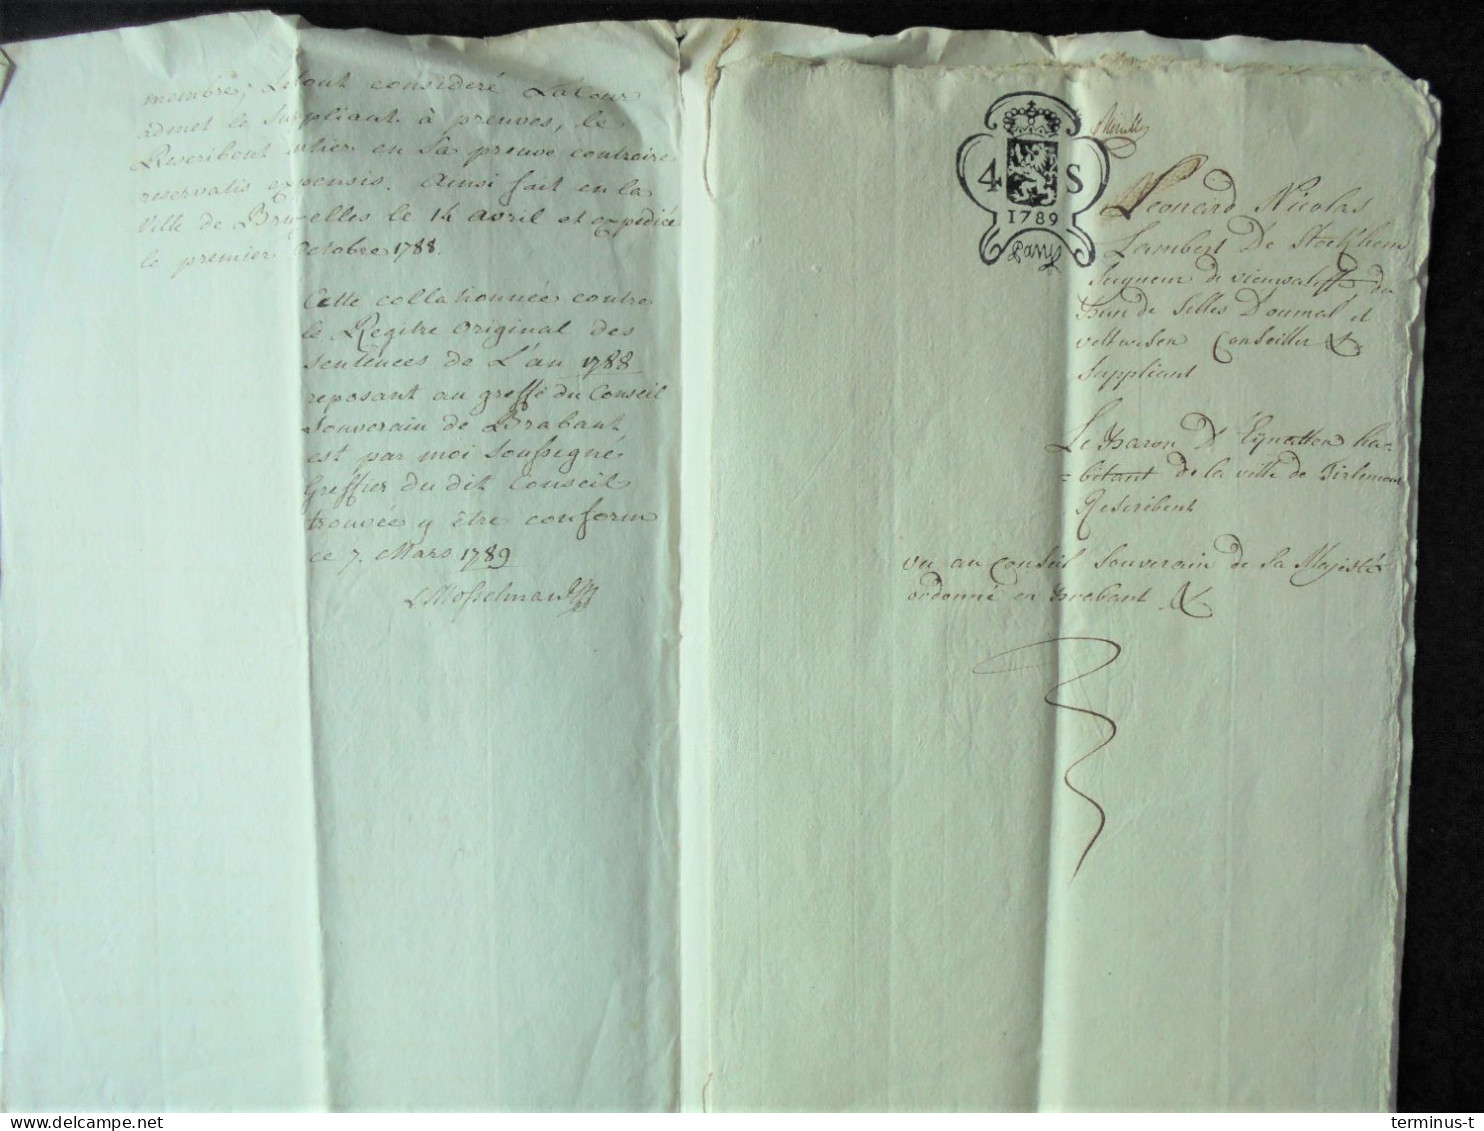 membre, Letout consideré La Cour
admet le Suppliant à preuves, le
Rescribent entier en Sa preuve contraire
reservatis expensis. Ainsi fait en la
Ville de Bruxelles le 14 avril et expediée
le premier Octobre 1788.
Cette collationnée contre
le Regitre Original des
sentences de L'an 1788
reposant au greffe du Conseil
Souverain de Brabant
est par moi Soussigné
Greffier du dit Conseil
trouvée y être conform
ce 7. Mars 1789
4 S
1789
Leonard Nicolas
Lambert De Stockhem
Seigneur de
de Selles Doumal et
Conseiller &
Suppliant
Le Baron D'Eynatten ha=
=bitant de la ville de Tirlemont
Rescribent
vu au Conseil Souverain de Sa Majesté
ordonné en Brabant &
terminus-t